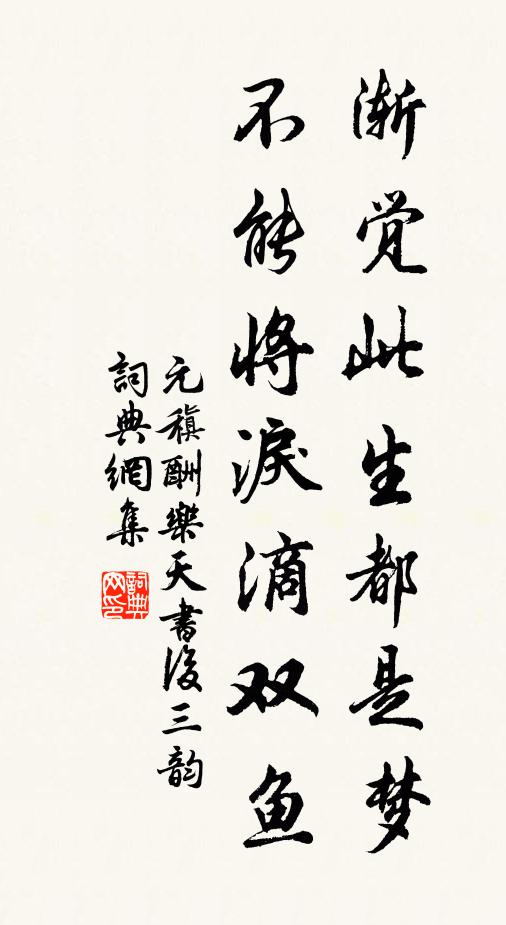 渐觉此生都是梦
不能将淚滴双鱼
元稹酬樂天書後三韵
詞典網集
詞典网印